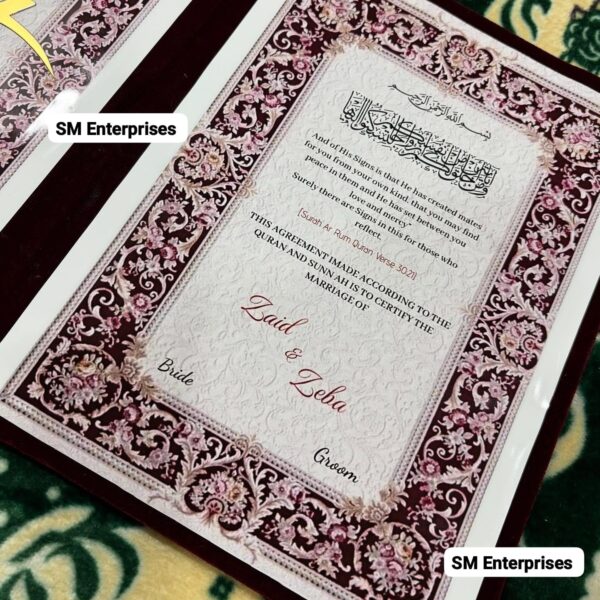 SM Enterprises
بسم الله الرحمن الرحيم
And of His Signs is that He has created mates
for you from your own kind, that you may find
peace in them and He has set between you
love and mercy"
Surely there are Signs in this for those who
reflect.
[Surah Ar Rum Quran Verse 30:21]
THIS AGREEMENT IMADE ACCORDING TO THE
QURAN AND SUNN AH IS TO CERTIFY THE
MARRIAGE OF
Zaid
&
Zeba
Bride
Groom
SM Enterprises